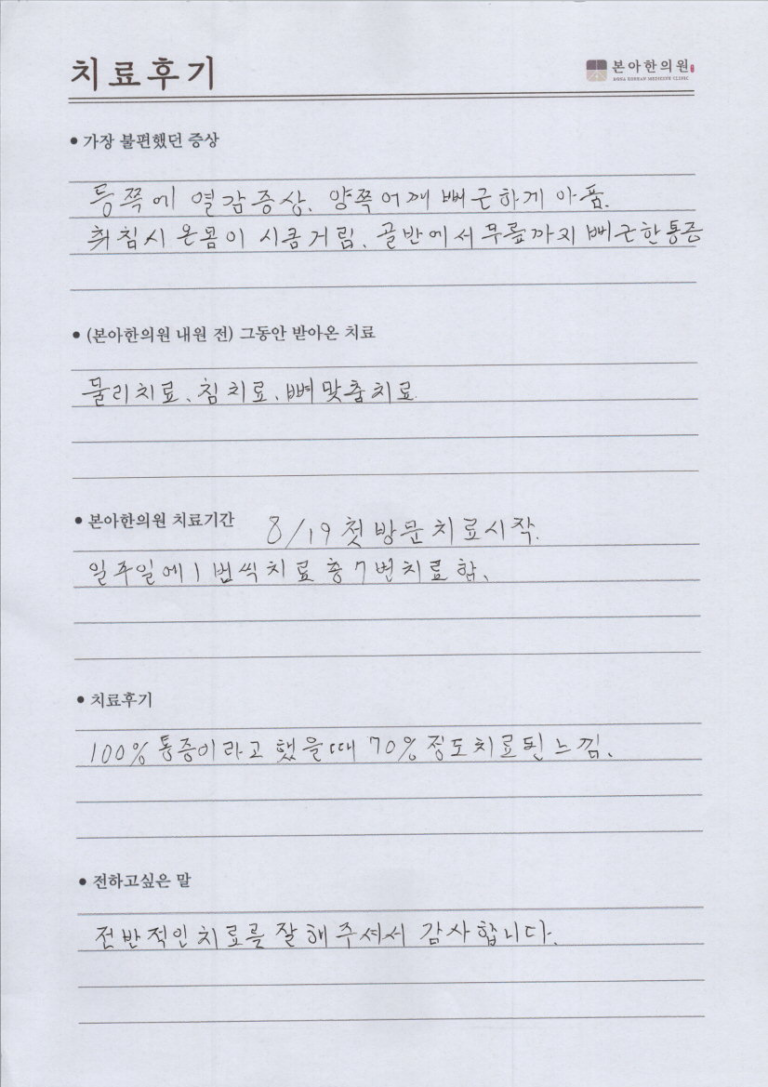 치료후기
본아한의원
BONA KOREAN MEDICINE CLINIC
• 가장 불편했던 증상
등쪽에 열감증상. 양쪽어깨 뻐근하게 아픔.
취침시 온몸이 시큼거림. 골반에서 무릎까지 뻐근한통증
• (본아한의원 내원 전) 그동안 받아온 치료
물리치료, 침치료, 뼈맞춤치료.
• 본아한의원 치료기간 8/19 첫방문치료시작.
일주일에 1번씩치료 총 7번치료함.
• 치료후기
100%통증이라고 했을때 70%정도치료된느낌.
• 전하고싶은 말
전반적인치료를 잘해주셔서 감사합니다.